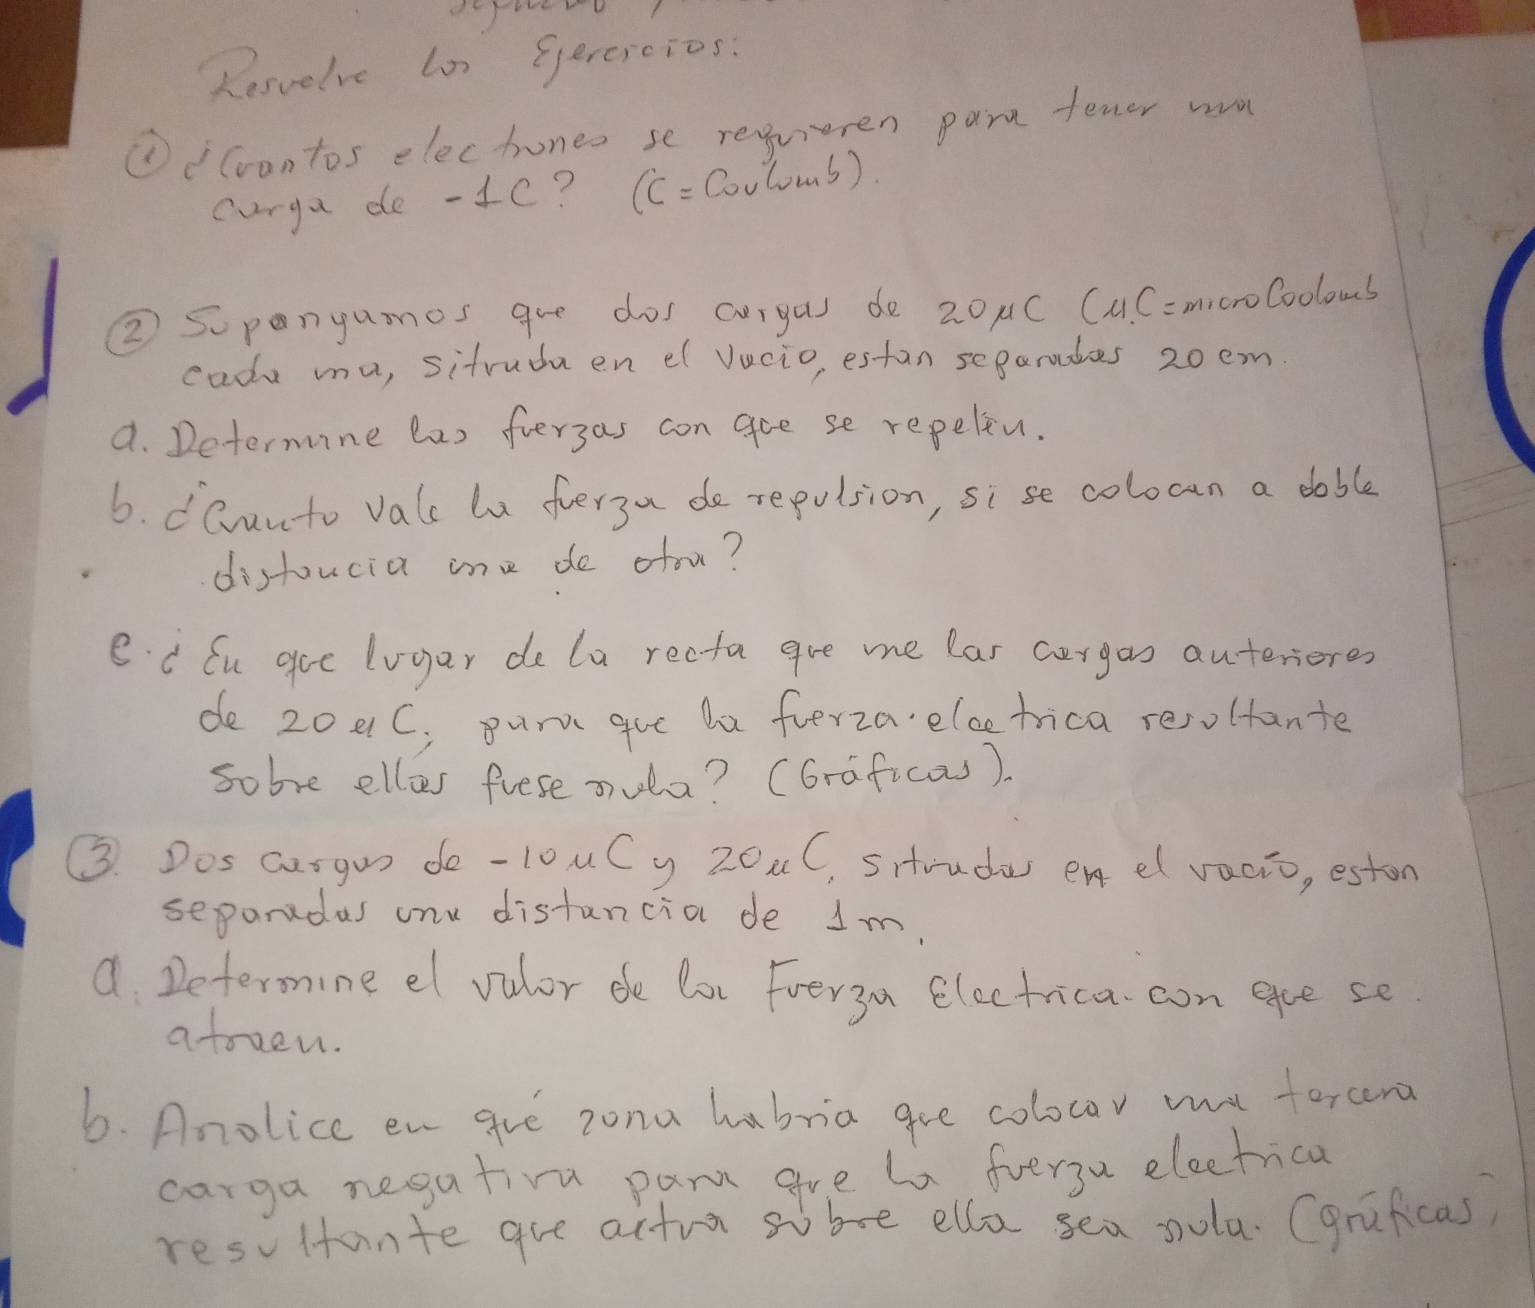 Resuelve los Ejercicios:
① ¿Cuantos electrones se requieren para tener una
carga de -1C? (C = Coulomb).
② Supongamos que dos cargas de 20μC (μC = microCoolomb
cada una, situada en el vacio, estan separadas 20 cm.
a. Determine las fuerzas con que se repelen.
b. ¿Cuanto vale la fuerza de repulsion, si se colocan a doble
distancia una de otra?
c. ¿En que lugar de la recta que une las cargas anteriores
de 20μC, para que la fuerza electrica resultante
sobre ellas fuese nula? (Gráficas).
③. Dos cargas de -10μC y 20μC, situadas en el vacío, estan
separadas una distancia de 1m.
a. Determine el valor de la Fuerza Electrica con que se
atraen.
b. Analice en qué zona habria que colocar una tercera
carga negativa para que la fuerza electrica
resultante que actua sobre ella sea nula. (gráficas)